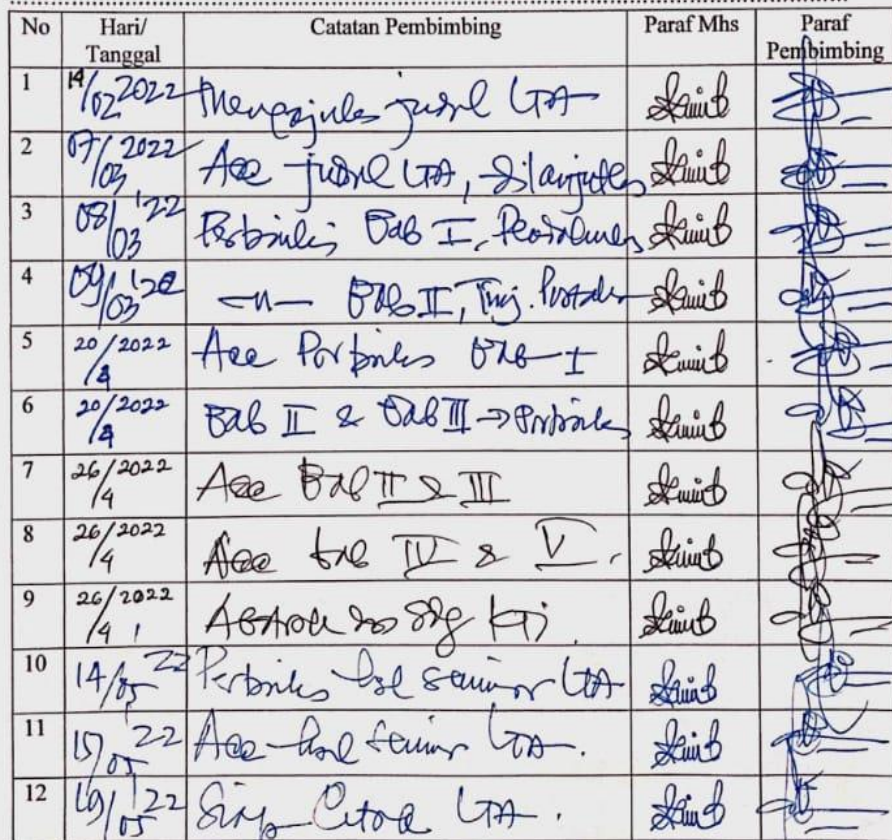 No Hari/ Tanggal Catatan Pembimbing Paraf Mhs Paraf Pembimbing
1 14/02 2022 Mengajukan judul LTA
2 07/03 2022 Acc judul LTA, dilanjutkan
3 08/03 '22 Perbaikan Bab I, Pendahuluan
4 09/03 '22 —"— Bab II, Tinj. Pustaka
5 20/4 2022 Acc Perbaikan Bab I
6 20/4 2022 Bab II & Bab III → Perbaikan
7 26/4 2022 Acc Bab II & III
8 26/4 2022 Acc bab IV & V.
9 26/4 2022 KTI
10 14/05 22 Perbaikan hsl seminar LTA
11 /05 22 Acc hasil seminar LTA.
12 19/05 '22 Siap Cetak LTA.